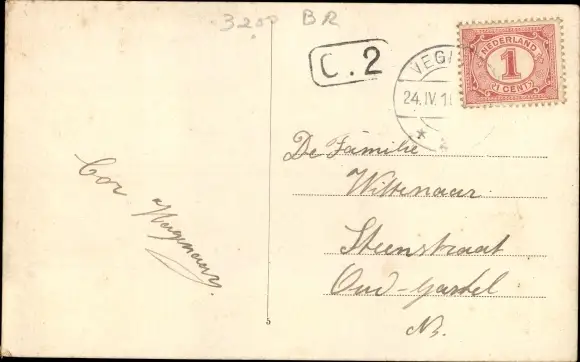 3200 BR
C.2
VEG
24.IV.1
NEDERLAND
1
1 CENT
De Familie
Wittenaar
Steenstraat
Oud-Gastel
NB.
Cor Wagenaar.
5